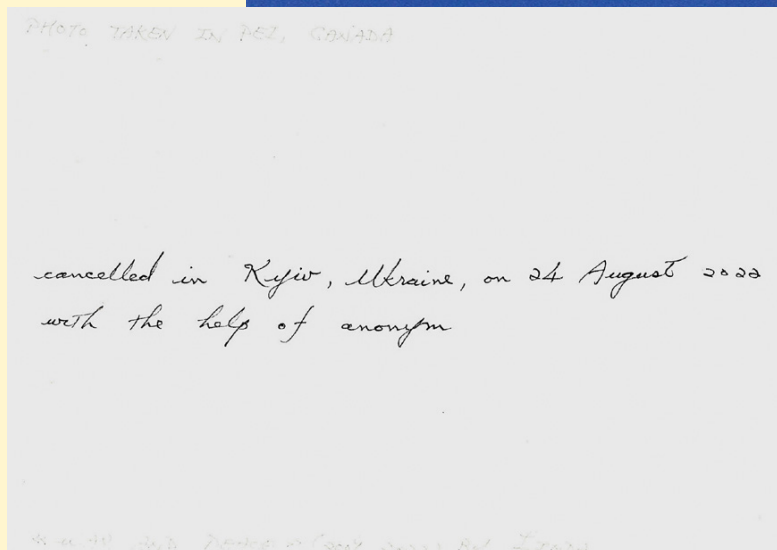 PHOTO TAKEN IN PEI, CANADA
cancelled in Kyiv, Ukraine, on 24 August 2022
with the help of anonym